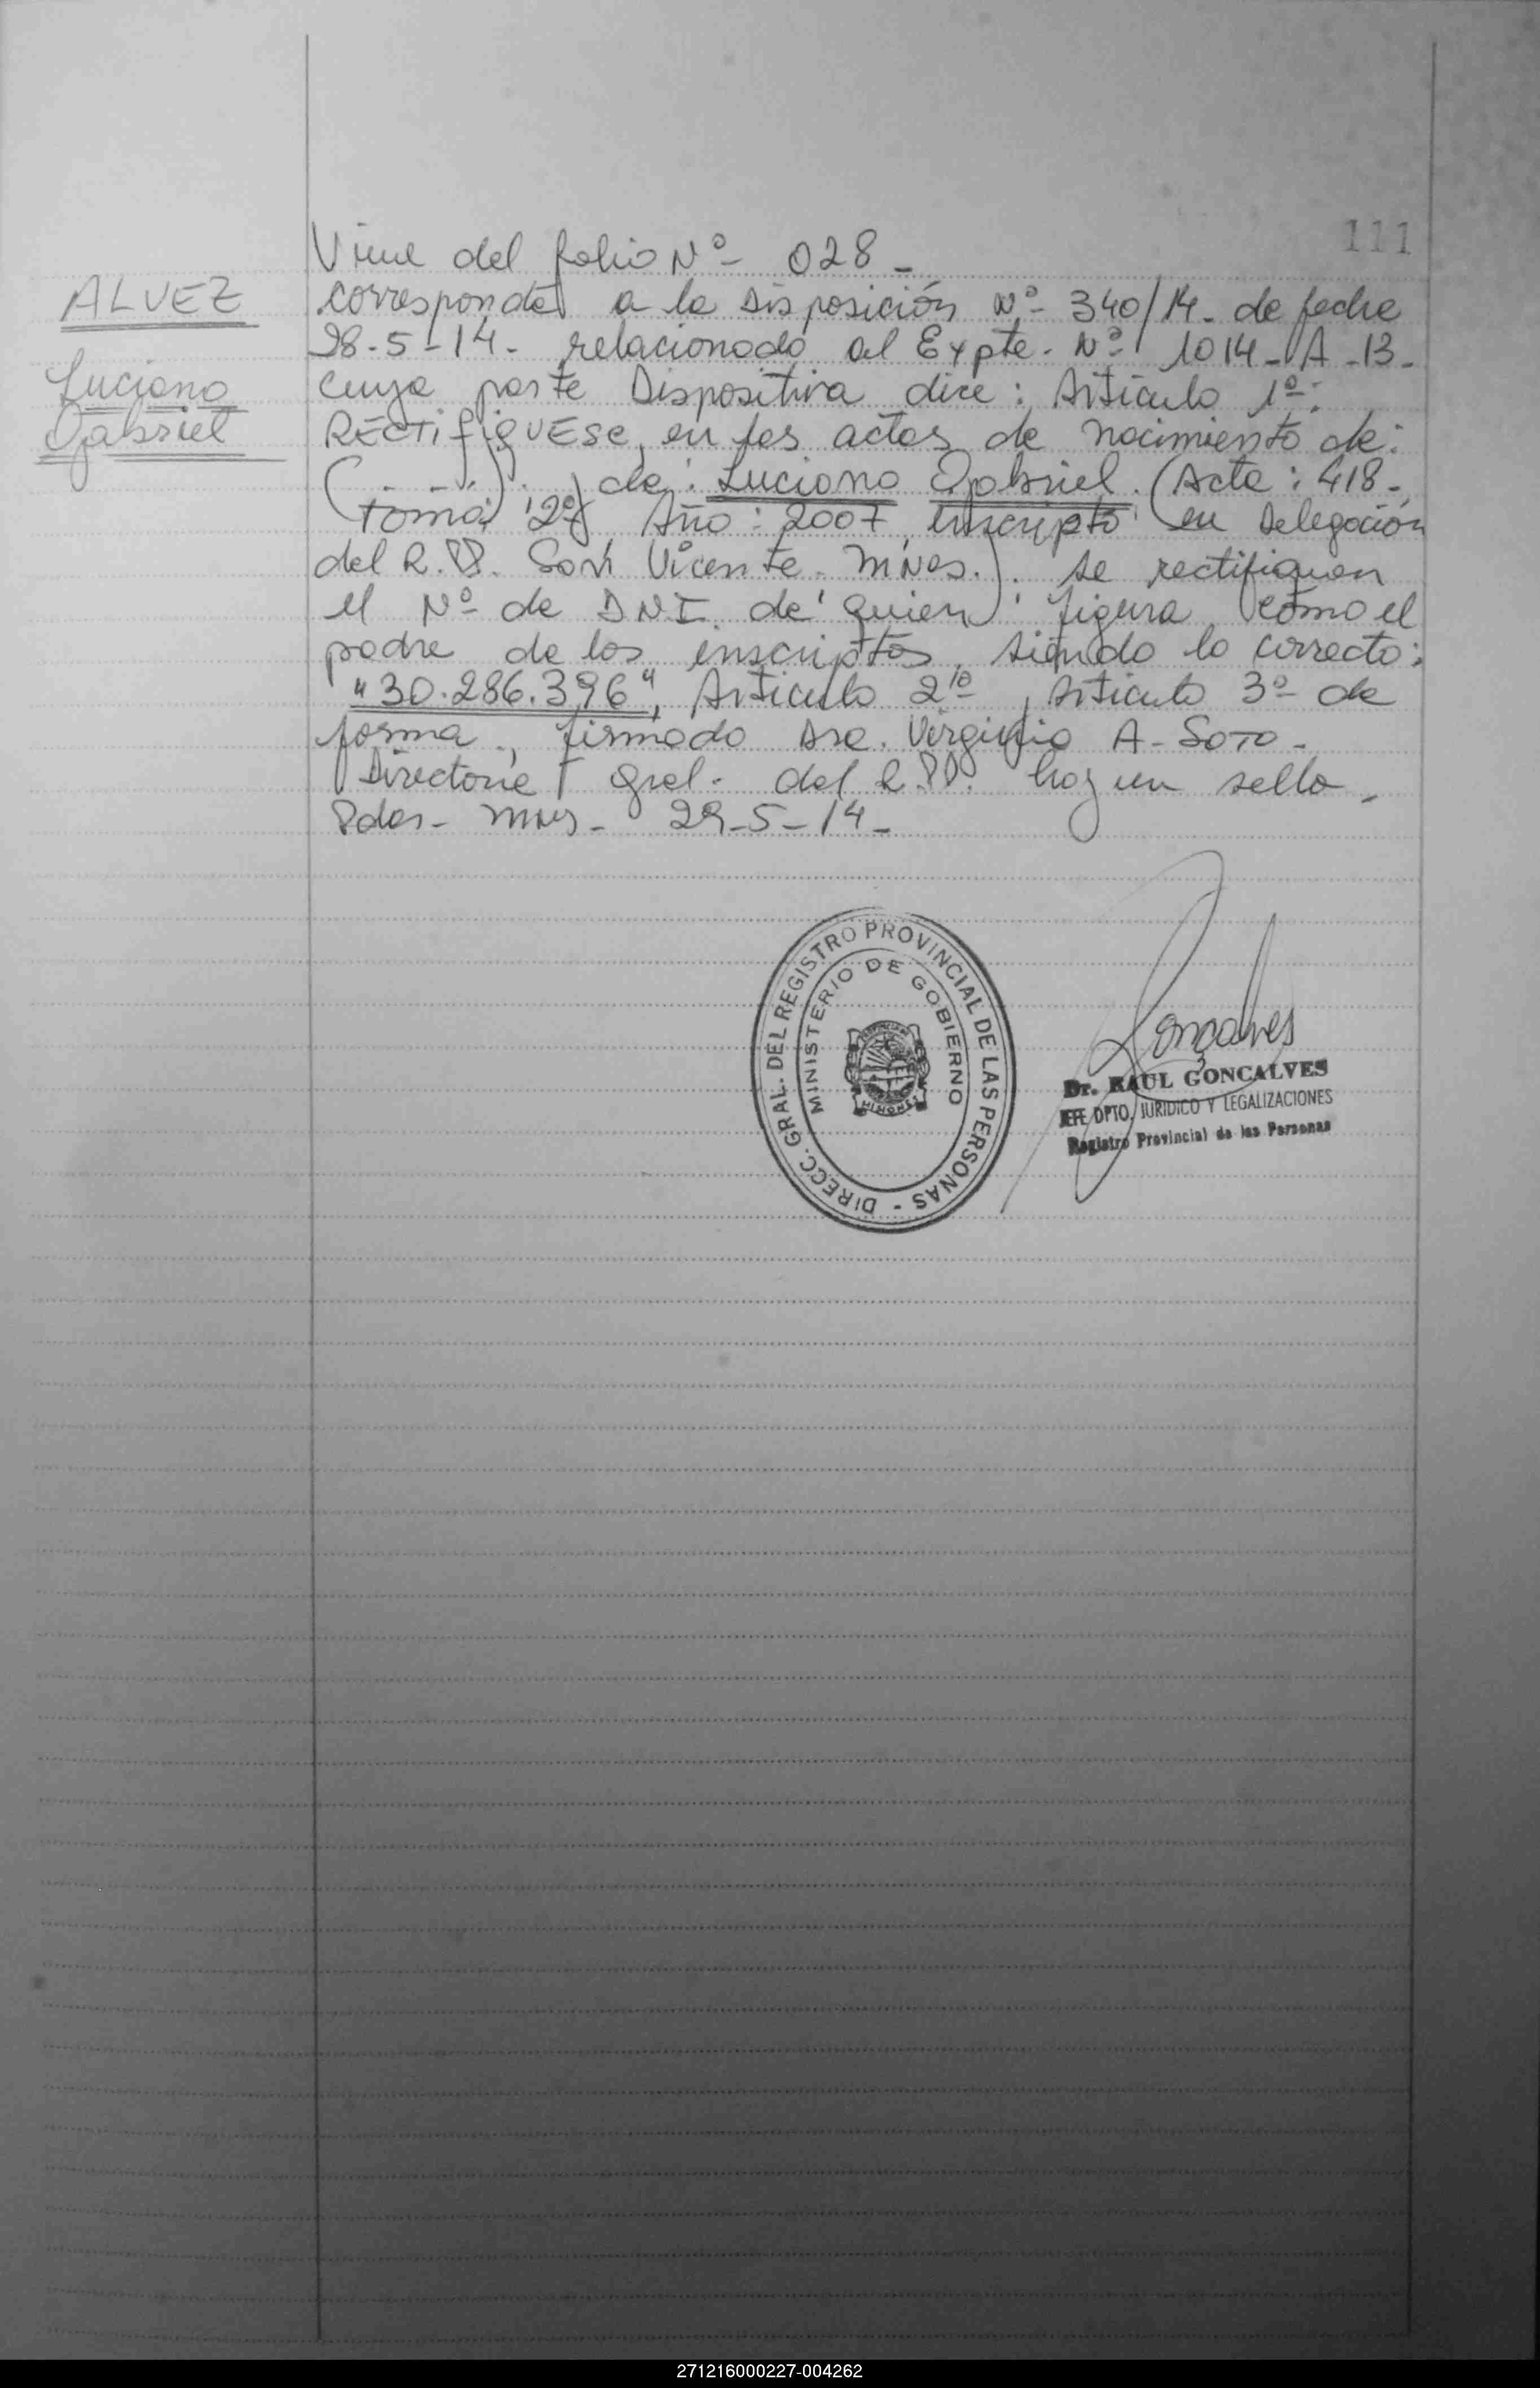 111
Viene del folio Nº- 028-
ALVEZ
Luciano
Gabriel
corresponde a la Disposición Nº- 340/14- de fecha
28-5-14- relacionado al Expte- Nº- 1014-A-13-
cuya parte Dispositiva dice: Artículo 1º-:
RECTIFIQUESE, en las actas de nacimiento de:
(......) de: Luciano Gabriel. (Acta: 418-,
Tomo: 2º, Año: 2007, inscripto en Delegación
del R.PP. San Vicente- Mnes.). se rectifiquen
el Nº- de DNI. de quien figura como el
padre de los inscriptos, siendo lo correcto:
"30.286.396", Artículo 2º, Artículo 3º- de
forma, firmado Dra. Virginia A- Soto-
Directora Gral- del R.PP. hay un sello-
Pdas- Mnes- 29-5-14-
DIRECC. GRAL. DEL REGISTRO PROVINCIAL DE LAS PERSONAS -
MINISTERIO DE GOBIERNO
MISIONES
Goncalves
Dr. RAUL GONCALVES
JEFE DPTO. JURIDICO Y LEGALIZACIONES
Registro Provincial de las Personas
271216000227-004262